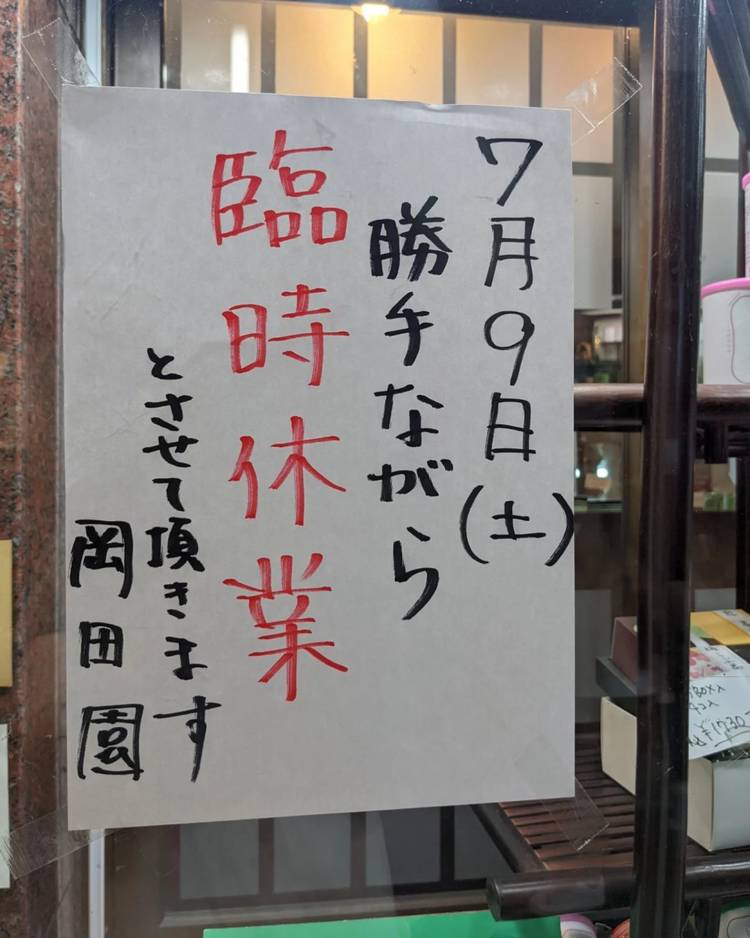 7月9日(土)
勝手ながら
臨時休業
とさせて頂きます
岡田園